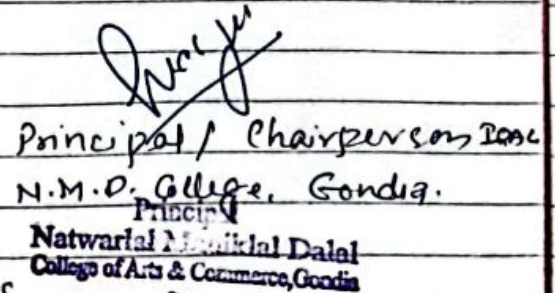 Principal / Chairperson IQAC
N.M.D. College, Gondia.
Principal
Natwarlal Maniklal Dalal
College of Arts & Commerce, Gondia